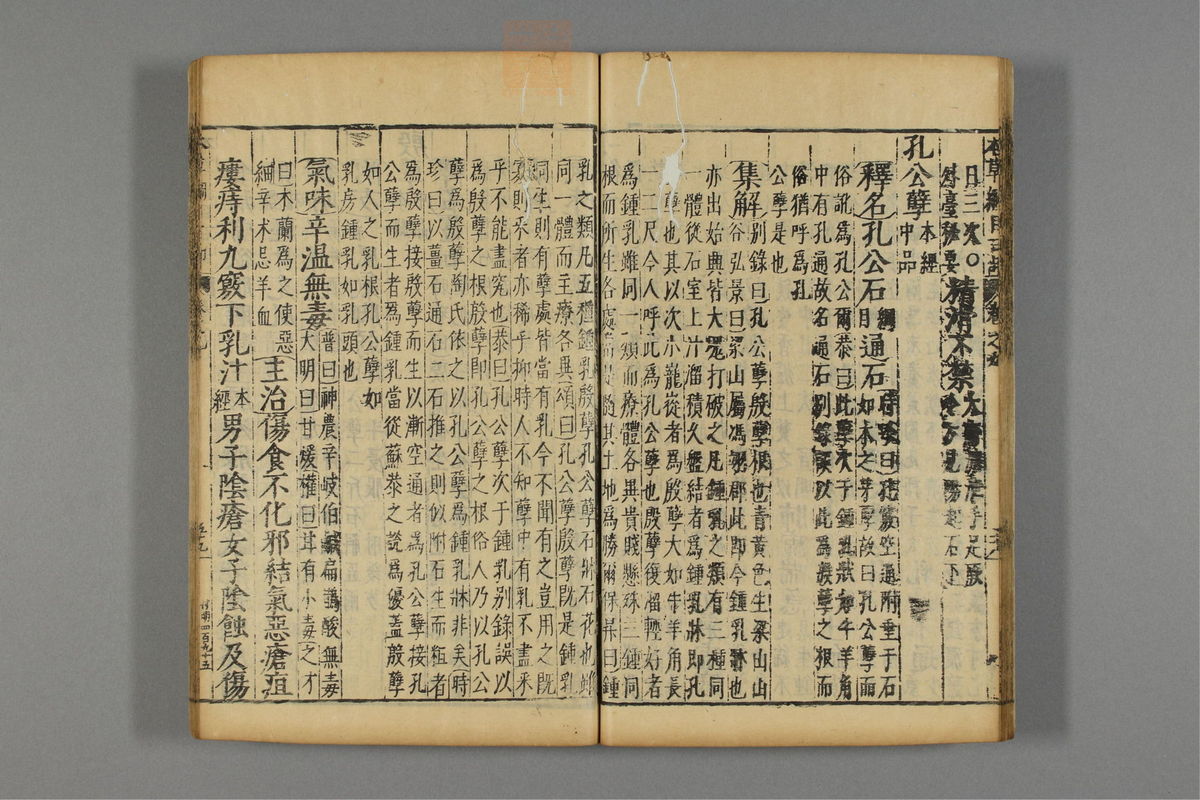 日三次○精滑不禁大腑溏泄手足厥
外臺秘要
孔公孽本經中品
釋名孔公石綱目通石時珍曰孔竅空通附垂于石
如木之芽孽故曰孔公孽而
俗訛爲孔公爾恭曰此孽次于鍾乳狀如牛羊角
中有孔通故名通石別錄誤以此爲殷孽之根而
俗猶呼爲孔
公孽是也
集解別錄曰孔公孽殷孽根也青黃色生梁山山
谷弘景曰梁山屬馮翊郡此即今鍾乳牀也
亦出始興皆大塊打破之凡鍾乳之類有三種同
一體從石室上汁溜積久盤結者爲鍾乳牀即孔
公孽也其以次小巃嵸者爲殷孽大如牛羊角長
一二尺今人呼此爲孔公孽也殷孽復溜輕好者
爲鍾乳雖同一類而療體各異貴賤懸殊三種同
根而所生各處當是隨其土地爲勝爾保昇曰鍾
乳之類凡五種鍾乳殷孽孔公孽石牀石花也雖
同一體而主療各異頌曰孔公孽殷孽既是鍾乳
同生則有孽處皆當有乳今不聞有之豈用之既
寡則采者亦稀乎抑時人不知孽中有乳不盡釆
乎不能盡究也恭曰孔公孽次于鍾乳別錄誤以
爲殷孽之根殷孽即孔公孽之根俗人乃以孔公
孽爲殷孽陶氏依之以孔公孽爲鍾乳牀非矣時
珍曰以薑石通石二石推之則似附石生而粗者
爲殷孽接殷孽而生以漸空通者爲孔公孽接孔
公孽而生者爲鍾乳當從蘇恭之說爲優蓋殷孽
如人之乳根孔公孽如
乳房鍾乳如乳頭也
氣味辛溫無毒普曰神農辛岐伯鹹扁鵲酸無毒
大明曰甘暖權曰甘有小毒之才
曰木蘭爲之使惡
細辛术忌羊血
主治傷食不化邪結氣惡瘡疽
瘻痔利九竅下乳汁本經男子陰瘡女子陰蝕及傷